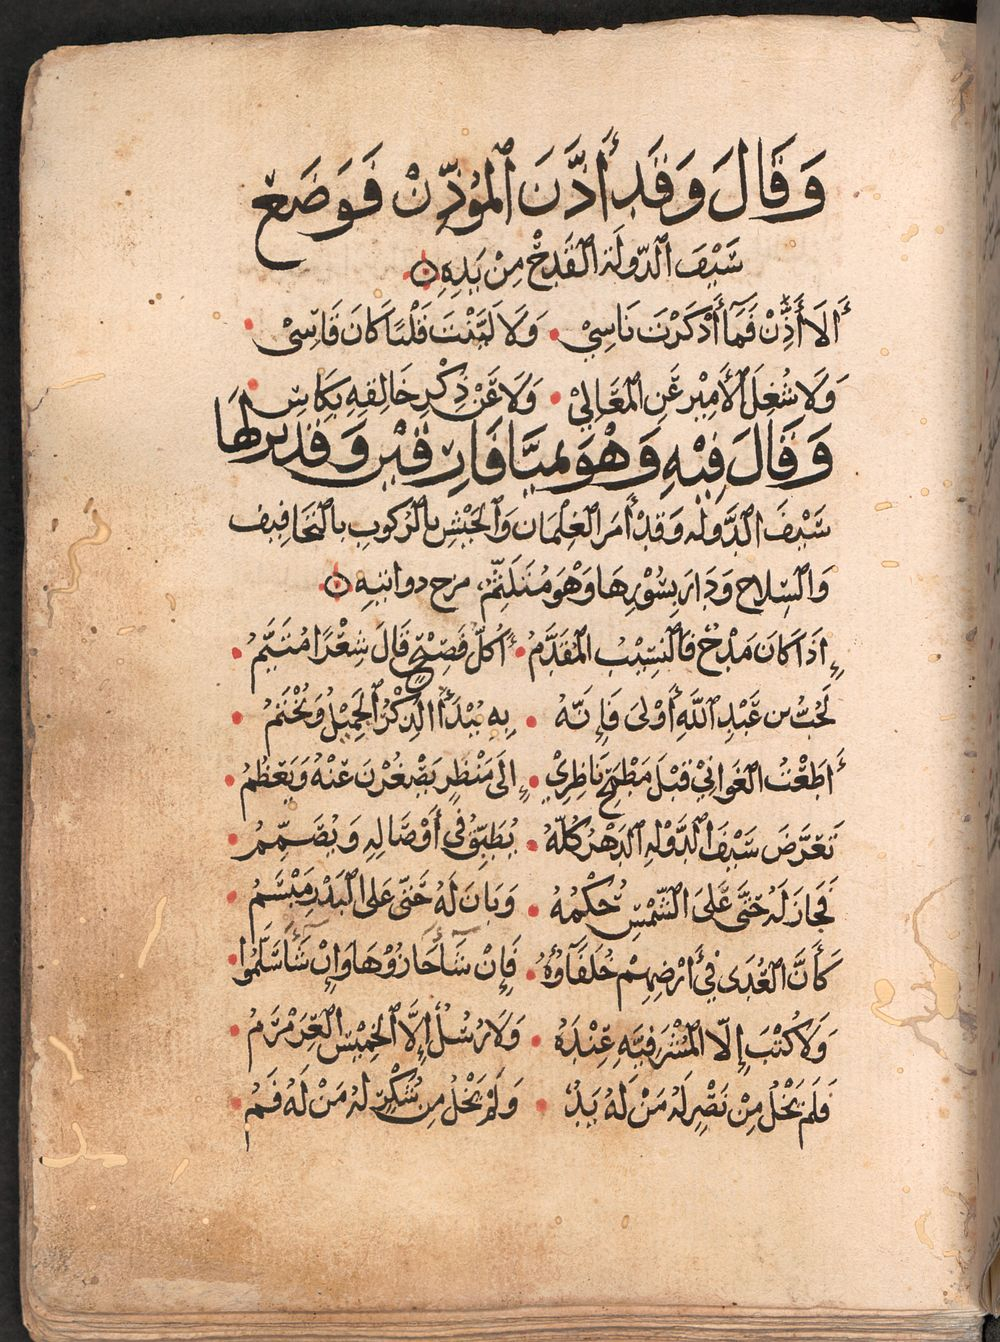 وَقَالَ وَقَد أَذَّنَ ٱلْمُؤذِّنْ فَوَضَعَ
سَيْفُ ٱلدَّولَةِ ٱلْقَدَحَ مِنْ يَدِهِ ۝
أَلَا أَذِّنْ فَمَا أَذْكَرْتَ نَاسِيْ • وَلَا لَيَّنْتَ قَلْبًا كَانَ قَاسِيْ •
وَلَا شُغِلَ ٱلْأَمِيْرُ عَنِ ٱلْمَعَالِيْ • وَلَا عَنْ ذِكْرِ خَالِقِهِ بِكَاسِ •
وَقَالَ فِيْهِ وَهُوَ بميَّافَارِقيْن وَقَد نزلهَا
سَيْفُ ٱلدَّوله وَقَدْ أَمَرَ ٱلْغِلْمَان وَٱلْجَيْش بالرُكوب بالتجَافيف
وَالسِّلاح وَدَارَ بِسُوْرِهَا وَهْوَ مُتَلَثِّمٌ
إِذَا كَانَ مَدْحٌ فَالنَّسِيْبُ ٱلْمُقَدَّمُ • أَكُلُّ فَصِيْحٍ قَالَ شِعْرًا مُتَيَّمُ •
لَحُبُّ بن عَبْدِ ٱللَّهِ أَوْلَى فَإِنَّهُ • بِهِ يُبْدَأُ ٱلذِّكْرُ ٱلْجَمِيْلُ وَيُخْتَمُ •
أَطَعْتُ ٱلْغَوَانِيْ قَبْلَ مَطْمَحِ نَاظِرِيْ • إِلَى مَنْظَرٍ يَصْغُرْنَ عَنْهُ وَيَعْظُمُ •
تَعَرَّضَ سَيْفُ ٱلدَّوْلَهِ ٱلدَهْرَ كُلَّهُ • يُطَبِّقُ فِي أَوْصَالِهِ وَيُصَمِّمُ •
فَجَازَ لَهُ حَتَّى عَلَى ٱلشَّمْسِ حُكْمُهُ • وَبَانَ لَهُ حَتَّى عَلَى ٱلبَدْرِ مَيْسَمُ •
كَأَنَّ ٱلْعِدَى فِي أَرْضِهِمْ خُلَفَاؤُهُ • فَإِنْ شَآءَ حَازُوْهَا وَإِنْ شَاءَ سَلَّمُوا •
وَلَا كُتْبَ إِلَّا ٱلْمَشْرَفِيَّهِ عِنْدَهُ • وَلَا رُسُلٌ إِلَّا ٱلْخَمِيْسُ ٱلْعَرَمْرَمُ •
فَلَم يَخْلُ مِنْ نَصْرٍ لَهُ مَنْ لَهُ يَدٌ • وَلَمْ يَخْلُ مِن شُكْرٍ لَهُ مَنْ لَهُ فَمُ •